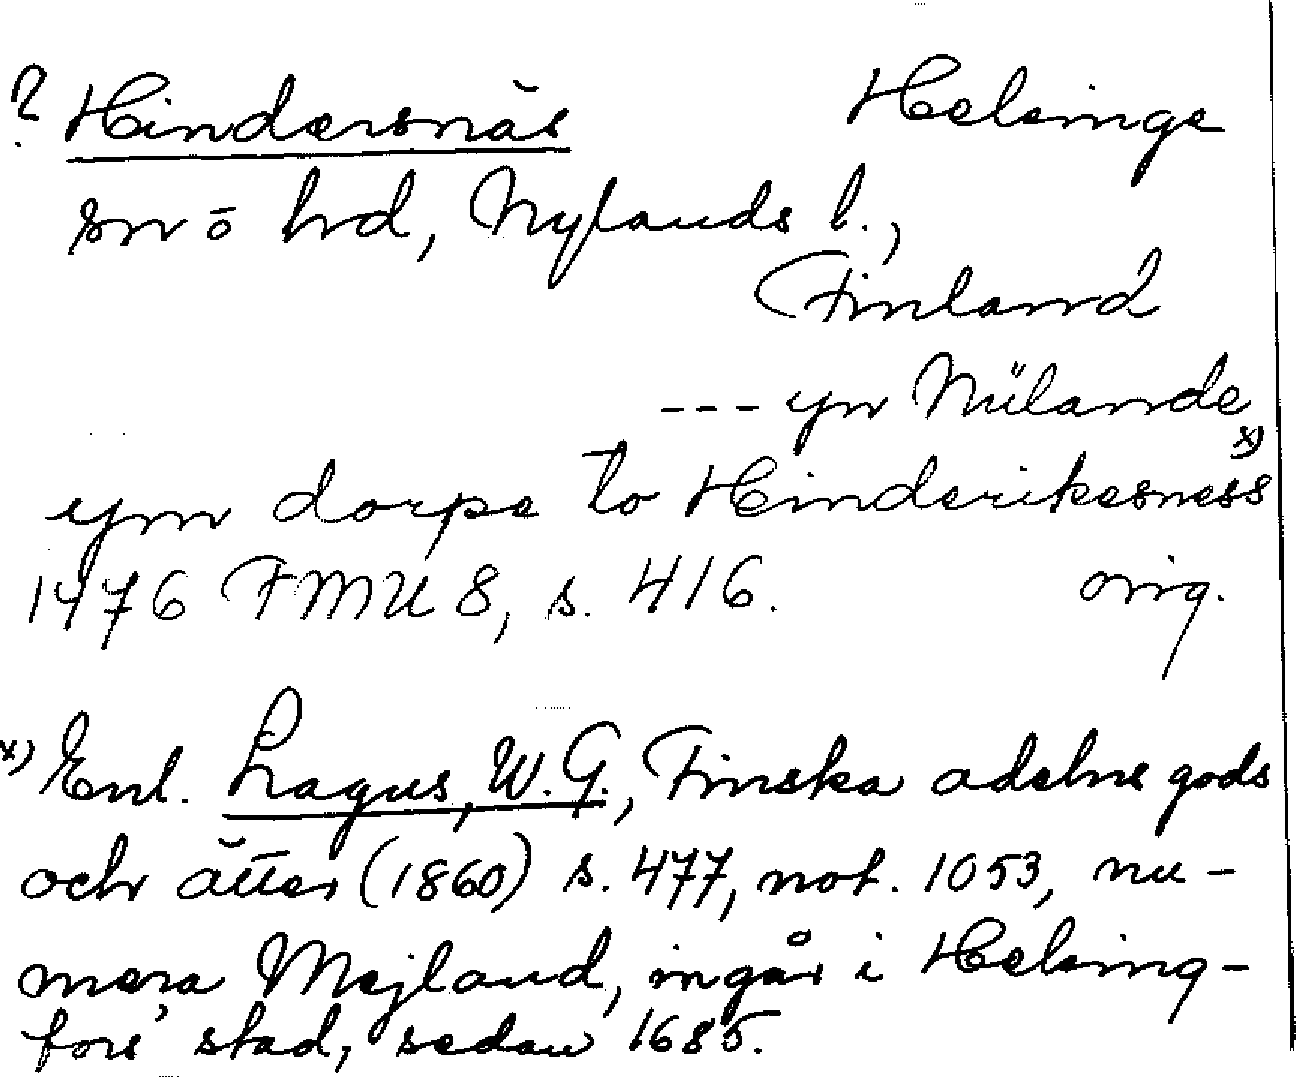 ? Hindersnäs Helsinge
sn o hd, Nylands l.,
Finland
--- yn Nülande
ym dorpe to Hinderikesness x)
1476 FMU 8, s. 416. orig.
x) Enl. Lagus, W.G., Finska adelns gods
och ätter (1860) s. 477, not. 1053, nu-
mera Mejland, ingår i Helsing-
fors' stad, sedan 1685.